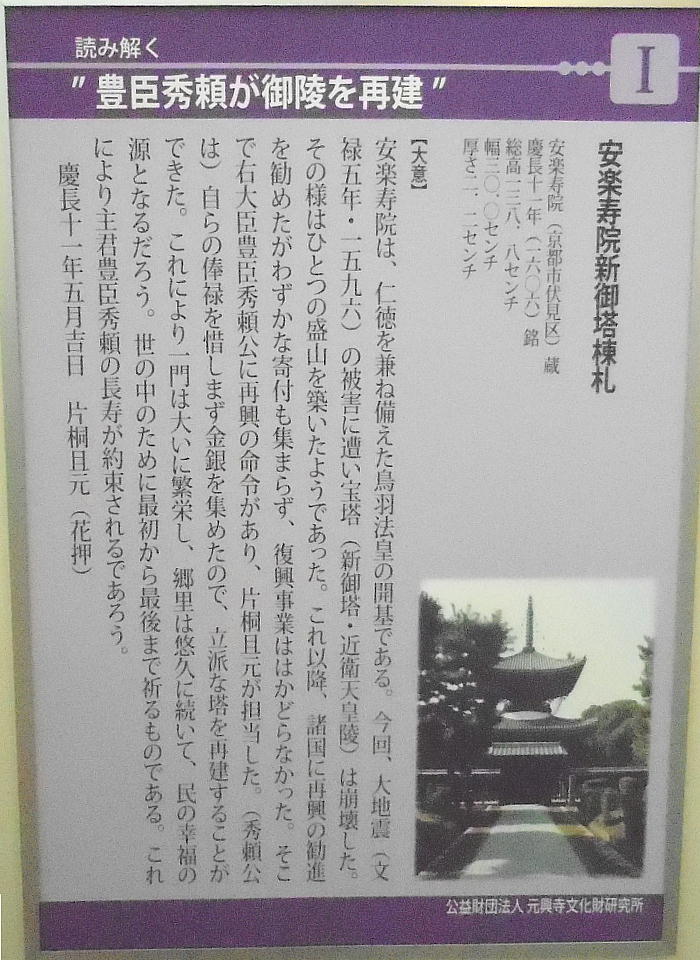 読み解く
〝豊臣秀頼が御陵を再建〟
I
安楽寿院新御塔棟札
安楽寿院（京都市伏見区）蔵
慶長十一年（一六〇六）銘
総高一三八．八センチ
幅三〇．〇センチ
厚さ二．二センチ
【大意】
安楽寿院は、仁徳を兼ね備えた鳥羽法皇の開基である。今回、大地震（文
禄五年・一五九六）の被害に遭い宝塔（新御塔・近衛天皇陵）は崩壊した。
その様はひとつの盛山を築いたようであった。これ以降、諸国に再興の勧進
を勧めたがわずかな寄付も集まらず、復興事業ははかどらなかった。そこ
で右大臣豊臣秀頼公に再興の命令があり、片桐且元が担当した。（秀頼公
は）自らの俸禄を惜しまず金銀を集めたので、立派な塔を再建することが
できた。これにより一門は大いに繁栄し、郷里は悠久に続いて、民の幸福の
源となるだろう。世の中のために最初から最後まで祈るものである。これ
により主君豊臣秀頼の長寿が約束されるであろう。
慶長十一年五月吉日　片桐且元（花押）
公益財団法人 元興寺文化財研究所